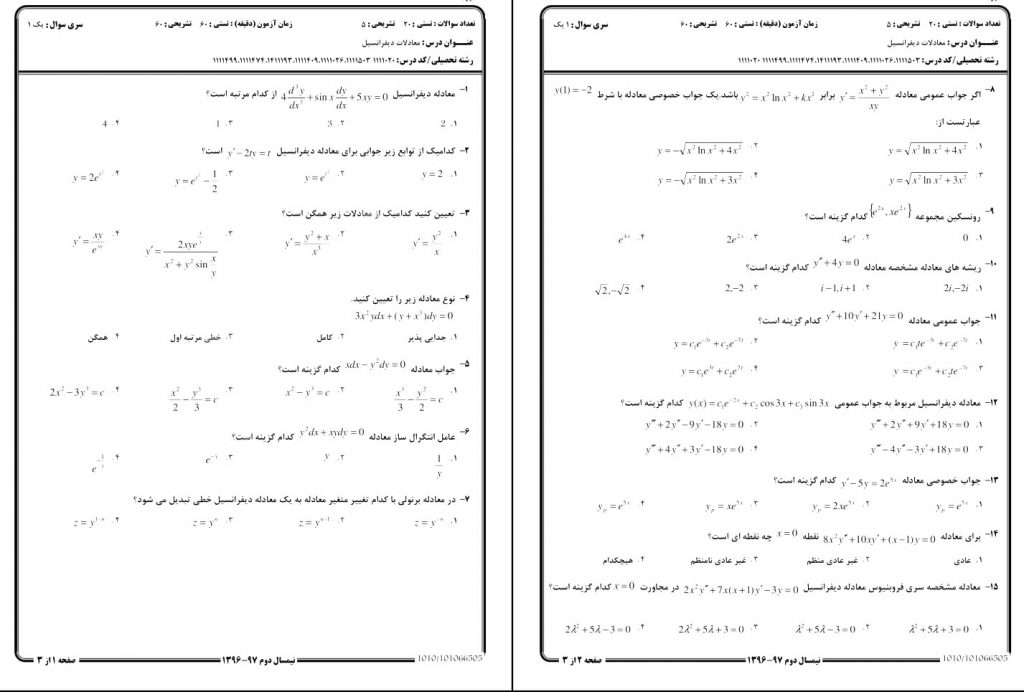 سری سوال : یک ۱
زمان آزمون (دقیقه) : تستی : ۶۰ تشریحی : ۶۰
تعداد سوالات : تستی : ۲۰ تشریحی : ۵
عنـــوان درس : معادلات دیفرانسیل
رشته تحصیلی/کد درس : ۱۱۱۱۰۲۰ ,۱۱۱۱۵۰۳ ,۱۱۱۱۰۲۶ ,۱۱۱۱۴۰۹ ,۱۴۱۱۱۹۳ ,۱۱۱۱۴۷۴ ,۱۱۱۱۴۹۹
۱- معادله دیفرانسیل 4 d³y/dx³ + sin x dy/dx + 5xy = 0 از کدام مرتبه است؟
۱. 2 ۲. 3 ۳. 1 ۴. 4
۲- کدامیک از توابع زیر جوابی برای معادله دیفرانسیل y′ − 2ty = t است؟
۱. y = 2 ۲. y = e^{t²} ۳. y = e^{t²} − 1/2 ۴. y = 2e^{t²}
۳- تعیین کنید کدامیک از معادلات زیر همگن است؟
۱. y′ = y²/x ۲. y′ = (y² + x)/x³ ۳. y′ = 2xye^{x/y} / (x² + y² sin x/y) ۴. y′ = xy/e^{xy}
۴- نوع معادله زیر را تعیین کنید.
3x²ydx + (y + x³)dy = 0
۱. جدایی پذیر ۲. کامل ۳. خطی مرتبه اول ۴. همگن
۵- جواب معادله xdx − y²dy = 0 کدام گزینه است؟
۱. x³/3 − y²/2 = c ۲. x² − y³ = c ۳. x²/2 − y³/3 = c ۴. 2x² − 3y³ = c
۶- عامل انتگرال ساز معادله y²dx + xydy = 0 کدام گزینه است؟
۱. 1/y ۲. y ۳. e^{-y} ۴.
۷- در معادله برنولی با کدام تغییر متغیر معادله به یک معادله دیفرانسیل خطی تبدیل می شود؟
۱. z = y^{-n} ۲. z = y^{n-1} ۳. z = y^{n} ۴. z = y^{1-n}
صفحه ۱ از ۳
نیمسال دوم ۹۷-۱۳۹۶
1010/101066505
سری سوال : ۱ یک
زمان آزمون (دقیقه) : تستی : ۶۰ تشریحی : ۶۰
تعداد سوالات : تستی : ۲۰ تشریحی : ۵
عنـــوان درس : معادلات دیفرانسیل
رشته تحصیلی/کد درس : ۱۱۱۱۰۲۰ ,۱۱۱۱۵۰۳ ,۱۱۱۱۰۲۶ ,۱۱۱۱۴۰۹ ,۱۴۱۱۱۹۳ ,۱۱۱۱۴۷۴ ,۱۱۱۱۴۹۹
۸- اگر جواب عمومی معادله y′ = (x² + y²)/xy برابر y² = x² ln x² + kx² باشد.یک جواب خصوصی معادله با شرط y(1) = −2
عبارتست از:
۱. y = √(x² ln x² + 4x²) ۲. y = −√(x² ln x² + 4x²)
۳. y = √(x² ln x² + 3x²) ۴. y = −√(x² ln x² + 3x²)
۹- رونسکین مجموعه {e^{2x}, xe^{2x}} کدام گزینه است؟
۱. 0 ۲. 4e^{x} ۳. 2e^{2x} ۴. e^{4x}
۱۰- ریشه های معادله مشخصه معادله y″ + 4y = 0 کدام گزینه است؟
۱. 2i,−2i ۲. i−1,i+1 ۳. 2,−2 ۴. √2,−√2
۱۱- جواب عمومی معادله y″ + 10y′ + 21y = 0 کدام گزینه است؟
۱. y = c₁te^{-3t} + c₂e^{-7t} ۲. y = c₁e^{-3t} + c₂e^{-7t}
۳. y = c₁e^{-3t} + c₂te^{-7t} ۴. y = c₁e^{3t} + c₂e^{7t}
۱۲- معادله دیفرانسیل مربوط به جواب عمومی y(x) = c₁e^{-2x} + c₂ cos 3x + c₃ sin 3x کدام گزینه است؟
۱. y‴ + 2y″ + 9y′ + 18y = 0 ۲. y‴ + 2y″ − 9y′ − 18y = 0
۳. y‴ − 4y″ − 3y′ + 18y = 0 ۴. y‴ + 4y″ + 3y′ − 18y = 0
۱۳- جواب خصوصی معادله y′ − 5y = 2e^{5x} کدام گزینه است؟
۱. y_p = e^{5x} ۲. y_p = 2xe^{5x} ۳. y_p = xe^{5x} ۴. y_p = e^{5x}
۱۴- برای معادله 8x²y″ + 10xy′ + (x−1)y = 0 نقطه x = 0 چه نقطه ای است؟
۱. عادی ۲. غیر عادی منظم ۳. غیر عادی نامنظم ۴. هیچکدام
۱۵- معادله مشخصه سری فروبنیوس معادله دیفرانسیل 2x²y″ + 7x(x+1)y′ − 3y = 0 در مجاورت x = 0 کدام گزینه است؟
۱. λ² + 5λ + 3 = 0 ۲. λ² + 5λ − 3 = 0 ۳. 2λ² + 5λ + 3 = 0 ۴. 2λ² + 5λ − 3 = 0
صفحه ۲ از ۳
نیمسال دوم ۹۷-۱۳۹۶
1010/101066505